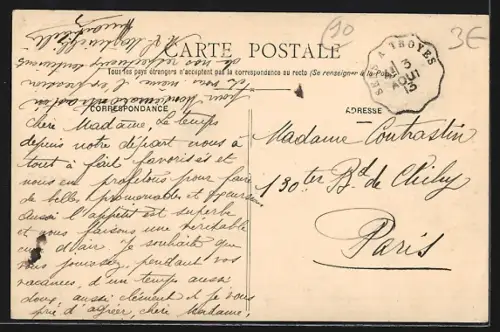 CARTE POSTALE
Tous les pays étrangers n'acceptent pas la correspondance au recto (Se renseigner à la Poste)
CORRESPONDANCE
ADRESSE
À TROYES
3
AOUT
13
90
3E
Chère Madame, Le temps
depuis notre départ nous a
tout à fait favorisés et
nous en profitons pour faire
de belles promenades et
aussi l'appétit est superbe
et nous faisons une véritable
cure d'air. Je souhaite que
vous jouissez pendant vos
vacances, d'un temps aussi
doux, aussi clément et je vous
prie d'agréer, chère Madame,
pour
et vos l'expression
de nos
Madame Contrastin
130 ter Bd de Clichy
Paris